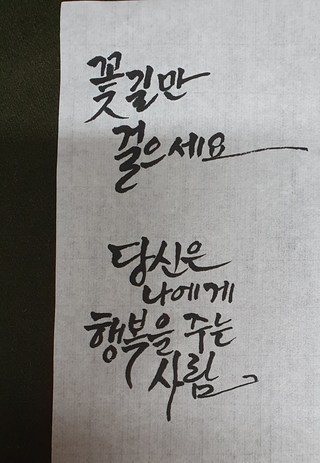 꽃길만
걸으세요
당신은
나에게
행복을 주는
사람